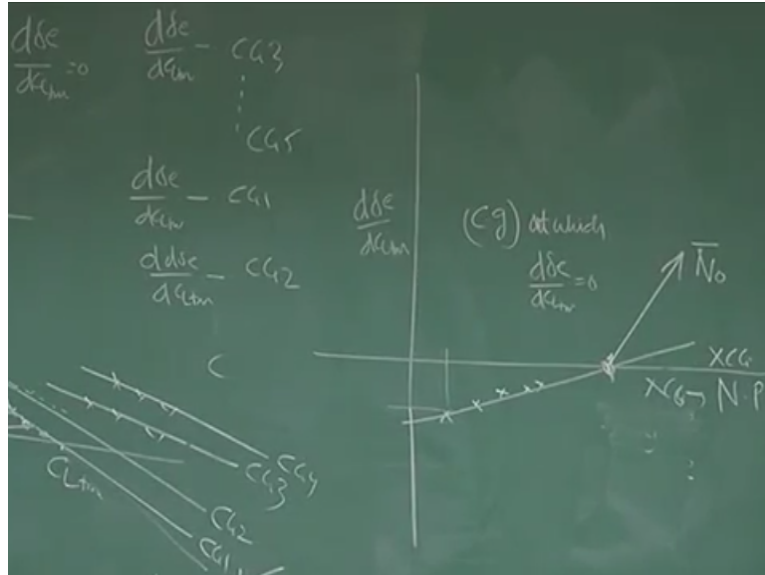 dδe/dCLtrim =0
dδe/dCLtrim - CG3
CG5
dδe/dCLtrim - CG1
ddδe/dCLtrim - CG2
C
CLtrim
CG4
CG3
CG2
CG1
dδe/dCLtrim
(Cg) at which
dδe/dCLtrim =0
N̄o
XCG
XCG → N.P